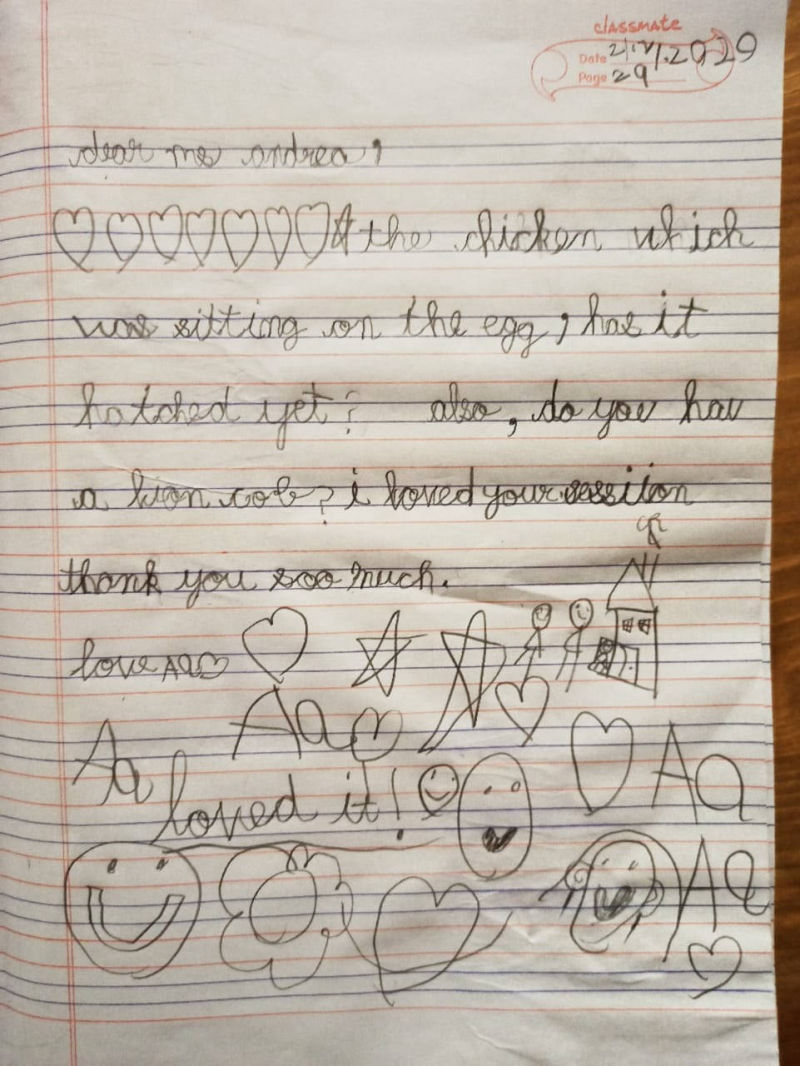 classmate
Date 2/12/2029
Page 29
dear ms andrea,
the chicken which
was sitting on the egg, has it
hatched yet? also, do you hav
a lion cob? i loved your session
thank you soo much.
love AQ
Aa
Aa
loved it!
Aa
Aa